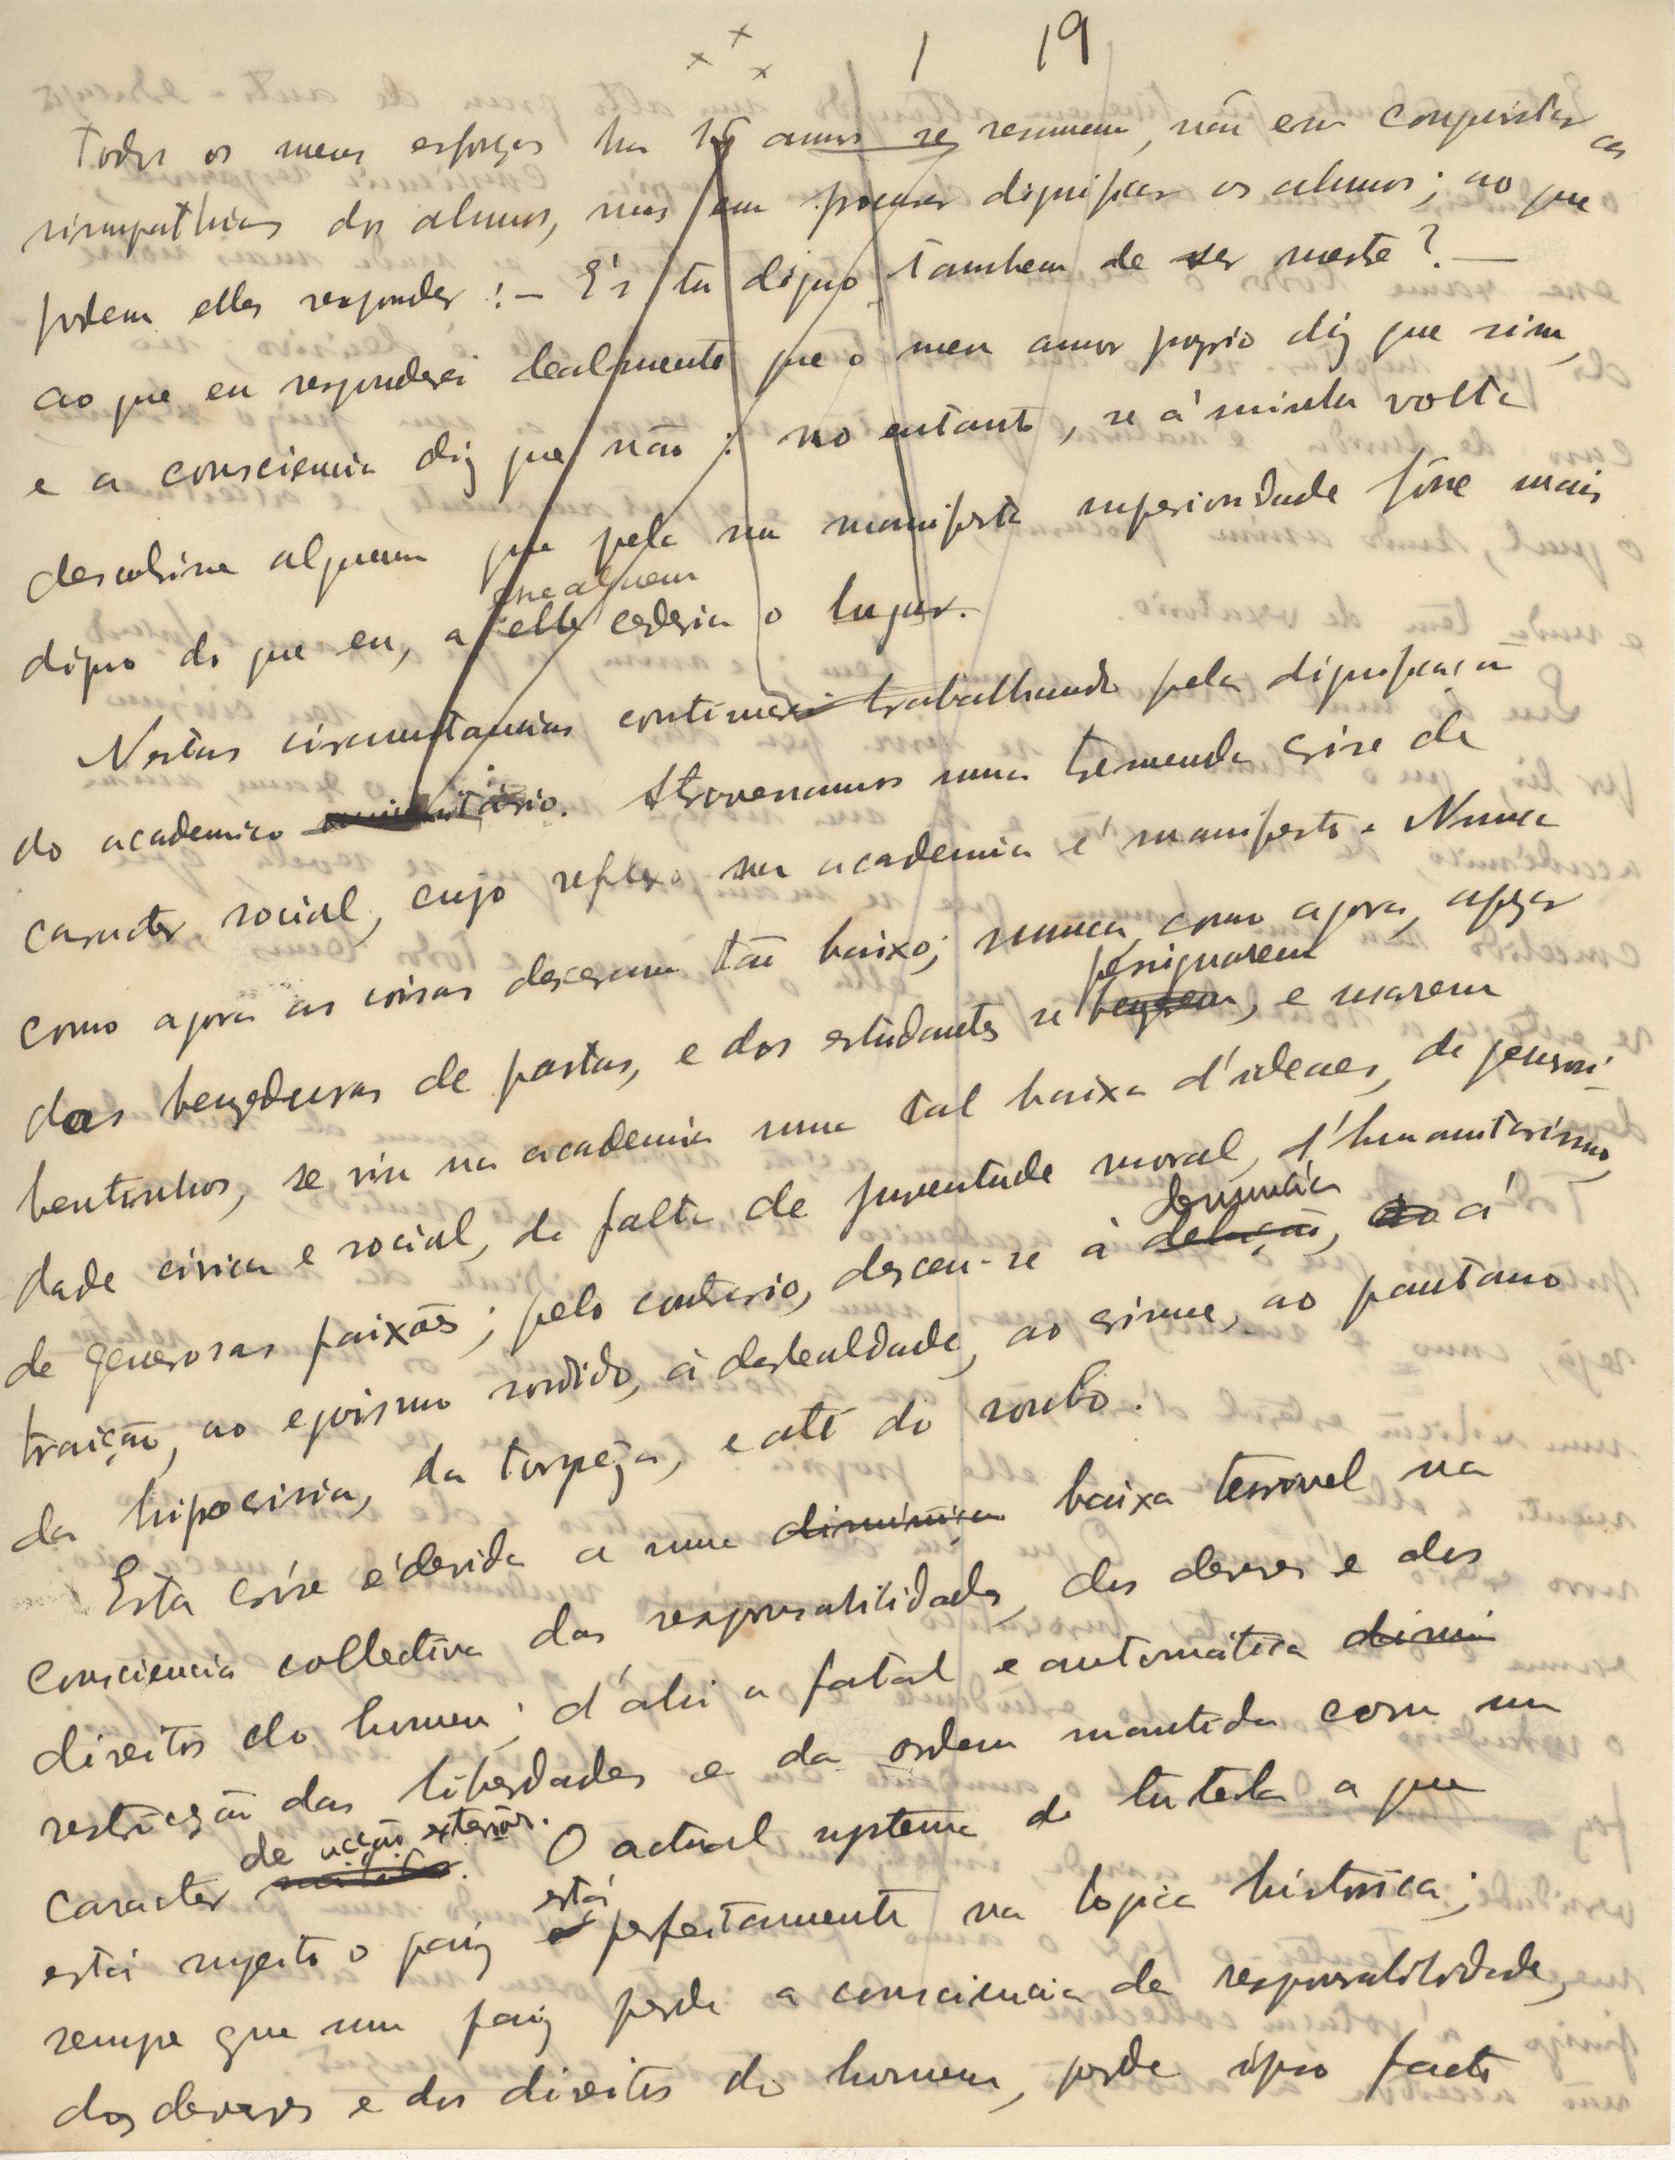 1 19
Todos os meus esforços ha annos se resumem, não em conquistar as
simpathias dos alumnos, mas em procurar dignificar os alumnos; ao que
podem elles responder: – És tu digno tambem de ser mestre? –
ao que eu responderei lealmente que o meu amor proprio diz que sim,
e a consciencia diz que não: no entanto, se á minha volta
descobrisse alguem que pela sua manifesta superioridade fôsse mais
esse alguem
digno do que eu, a elle cederia o lugar.
Nestas circunstancias continuei trabalhando pela dignificação
do academico. Atravessamos uma tremenda crise de
caracter social, cujo reflexo na academia é manifesto. Nunca
como agora as coisas desceram tão baixo; nunca, como agora, apezar
persignarem
das benzeduras de pastas, e dos estudantes se benzerem, e usarem
bentinhos, se viu na academia uma tal baixa d'ideaes, de generosi-
dade civica e social, de falta de juventude moral, d'humanitarismo,
denuncia
de generosas paixões; pelo contrario, desceu-se á delação, á
traição, ao egoismo sordido, á deslealdade, ao crime, ao pantano
da hipocrisia, da torpeza, e até do roubo.
Esta crise é devida a uma diminuição baixa terrivel na
consciencia collectiva das responsabilidades, dos deveres e dos
direitos do homem; d'ahi a fatal e automática dimi
restricção das liberdades e da ordem mantida com um
de acção exterior.
caracter O actual systema de tutela a que
está
está sujeito o paiz é perfeitamente na logica histórica;
sempe que um paiz perde a consciencia da responsabilidade,
dos deveres e dos direitos do homem, perde ipso facto